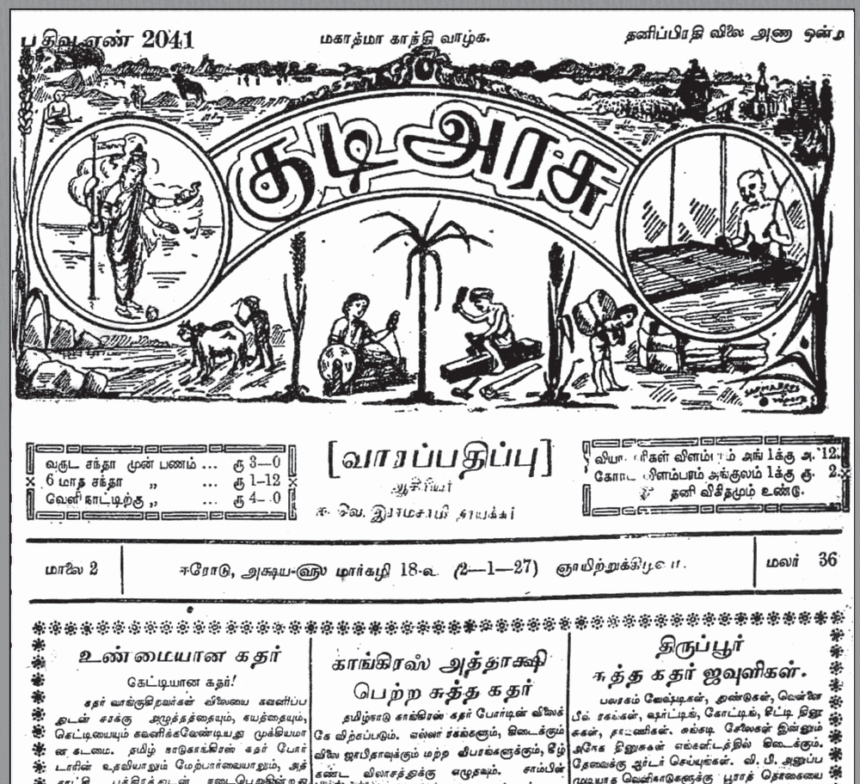 பதிவு எண் 2041
மகாத்மா காந்தி வாழ்க.
தனிப்பிரதி விலை அணா ஒன்று
குடி அரசு
வருட சந்தா முன் பணம் ... ரூ 3—0
6 மாத சந்தா „ ... ரூ 1—12
வெளி நாட்டிற்கு „ ... ரூ 4—0
[வாரப்பதிப்பு]
ஆசிரியர்
ஈ. வெ. இராமசாமி நாயக்கர்
விளம்பரம் அங் 1க்கு அ. 12
விளம்பரம் அங்குலம் 1க்கு ரூ. 2
தனி விகிதமும் உண்டு.
மாலை 2
ஈரோடு, அக்ஷய-௵ மார்கழி 18-௨ (2—1—27) ஞாயிற்றுக்கிழமை.
மலர் 36
உண்மையான கதர்
கெட்டியான கதர்!
கதர் வாங்குகிறவர்கள் விலையை கவனிப்ப
துடன் சரக்கு அழுத்தத்தையும், நயத்தையும்,
கெட்டியையும் கவனிக்கவேண்டியது முக்கியமா
ன கடமை. தமிழ் நாடுகாங்கிரஸ் கதர் போர்
டாரின் உதவியாலும் மேற்பார்வையாலும், அத்
காங்கிரஸ் அத்தாக்ஷி
பெற்ற சுத்த கதர்
தமிழ்நாடு காங்கிரஸ் கதர் போர்டின் விலைக்
கே விற்கப்படும். எல்லா ரகங்களும், கிடைக்கும்
விலை ஜாபிதாவுக்கும் மற்ற விபரங்களுக்கும், கீழ்
கண்ட விலாசத்துக்கு எழுதவும். சாம்பிள்
திருப்பூர்
சுத்த கதர் ஜவுளிகள்.
பலரகம் வேஷ்டிகள், துண்டுகள், வெள்ளை
பீஸ் ரகங்கள், ஷர்ட்டிங், கோட்டிங், சீட்டி தினு
சுகள், தாவணிகள். சுங்கடி சேலைகள் இன்னும்
அநேக தினுசுகள் எங்களிடத்தில் கிடைக்கும்.
தேவைக்கு ஆர்டர் செய்யுங்கள். வி. பி. அனுப்ப